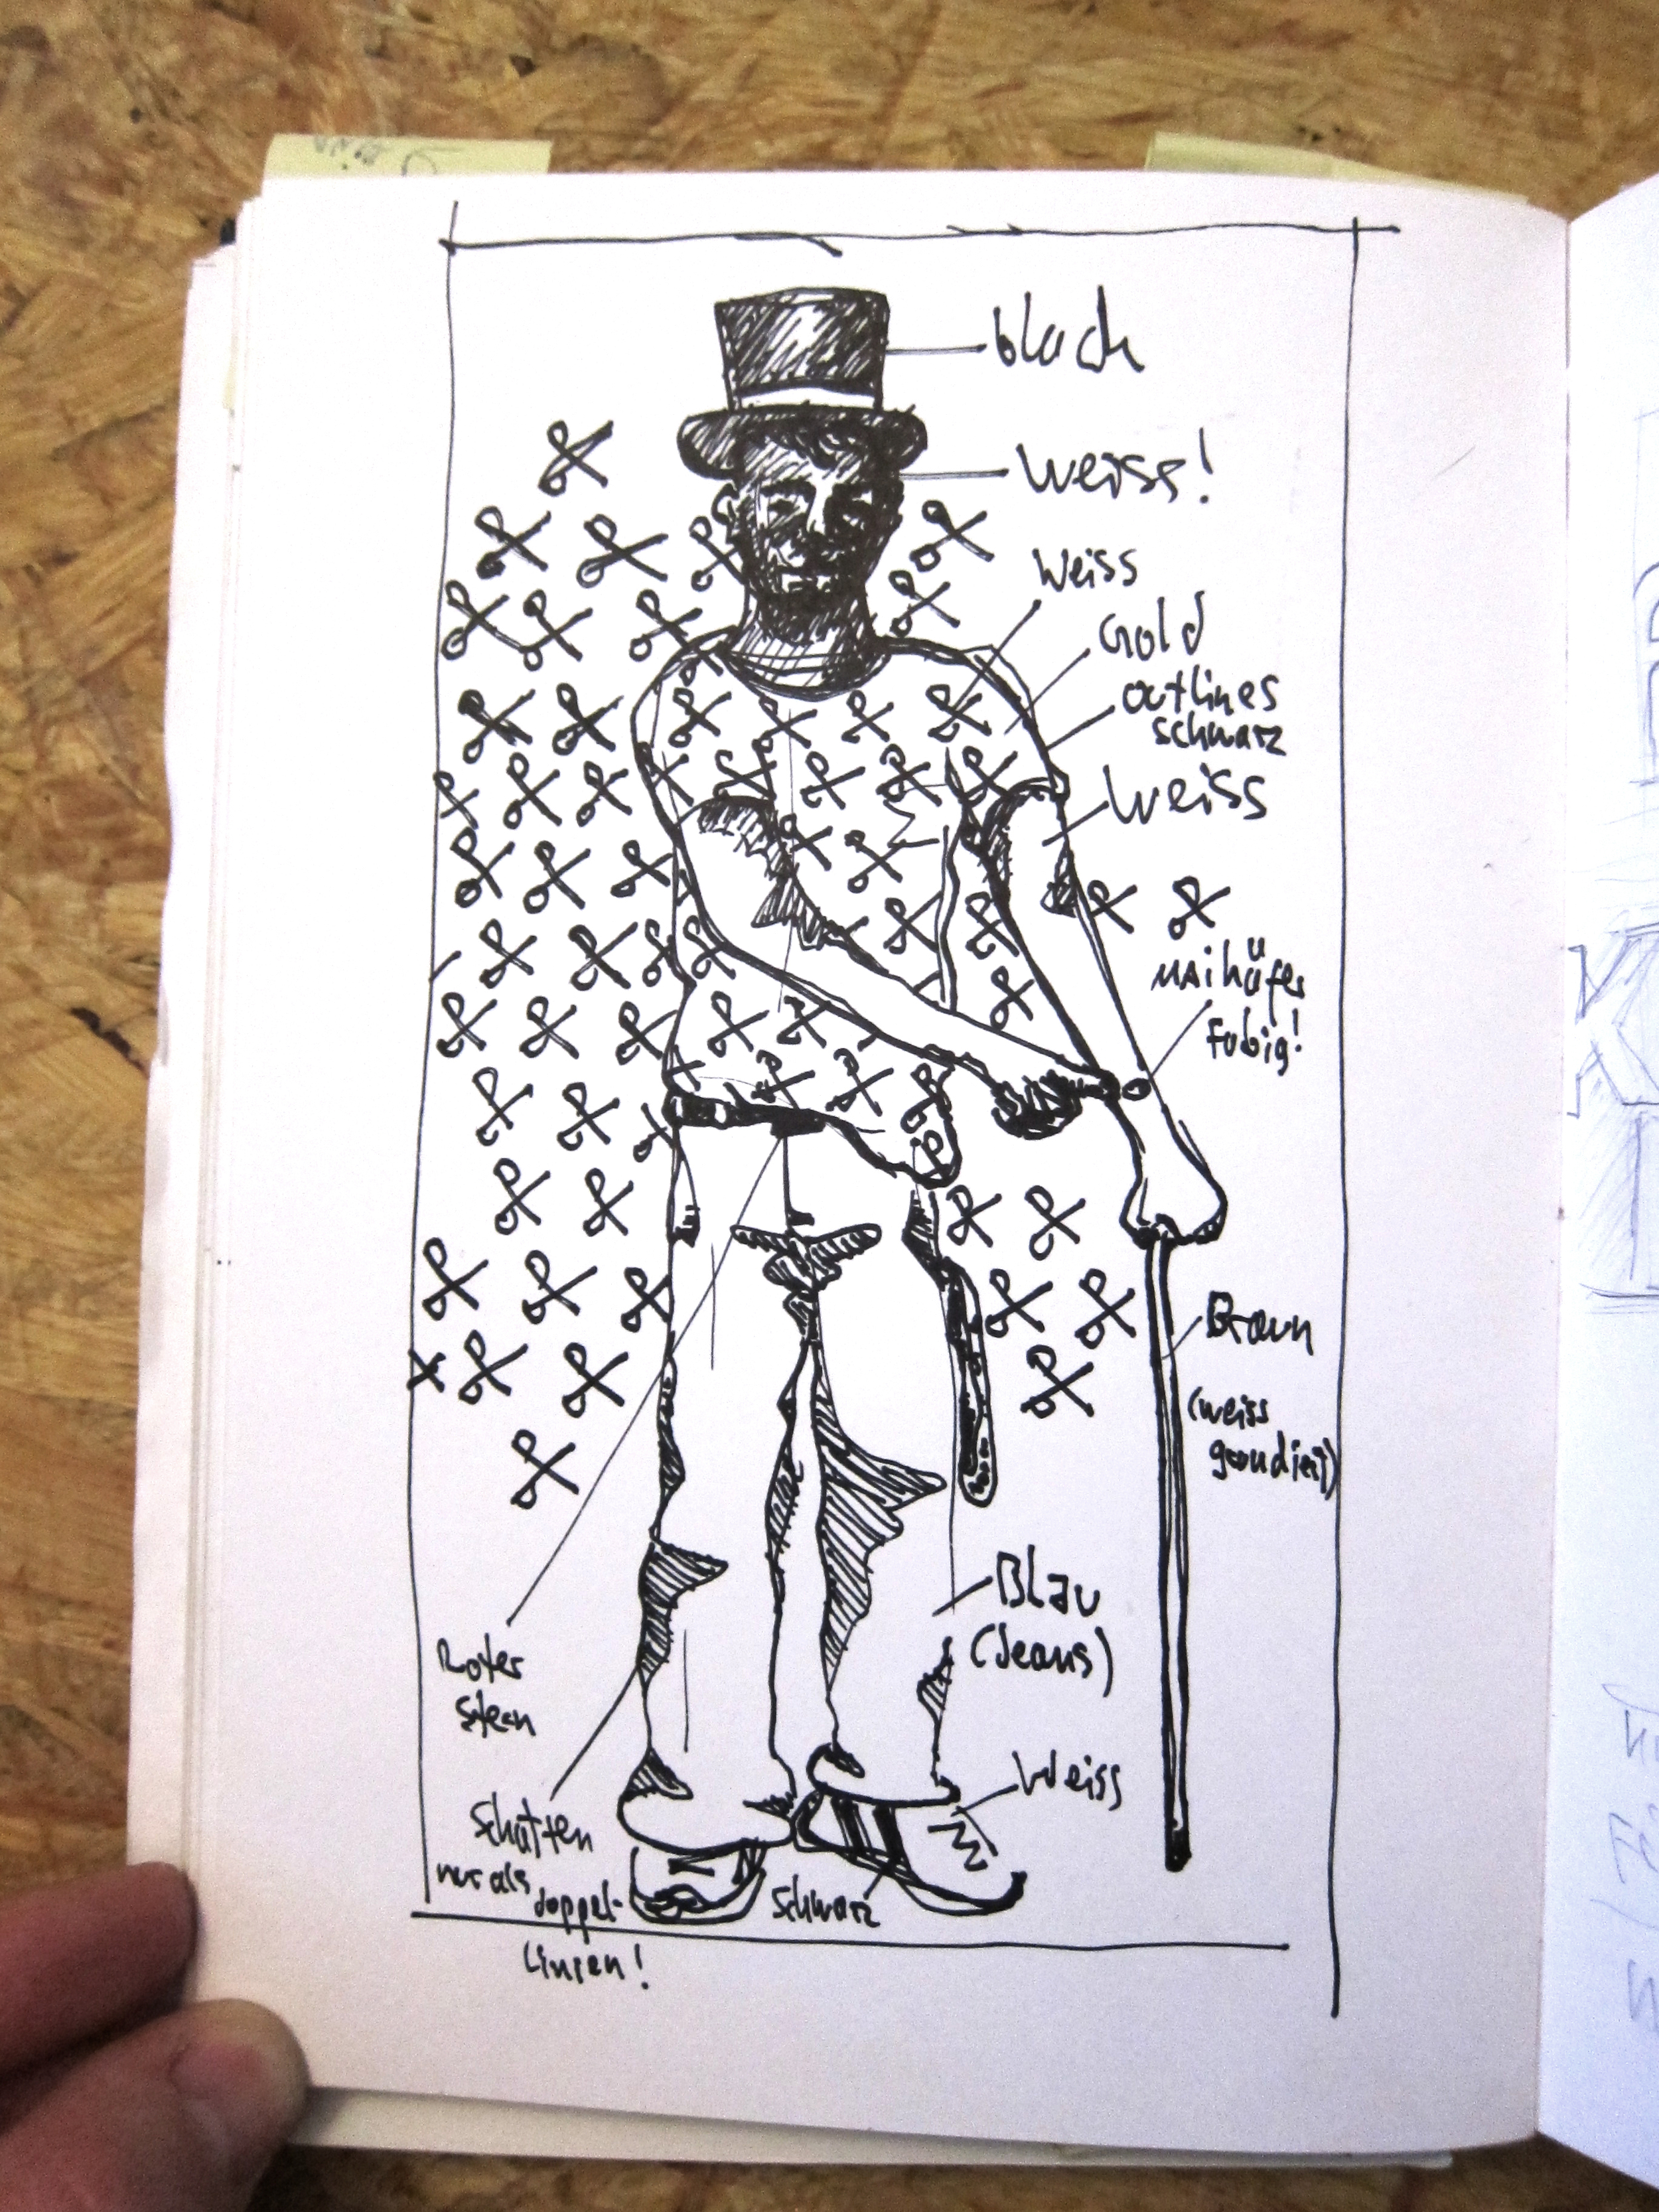 black
Weiss!
Weiss
Gold
outlines
schwarz
Weiss
Maikäfer
Braun
(weiss
grundiert)
Blau
(Jeans)
Roter
Stern
Weiss
Schatten
nur als
doppel-
Linien!
Schwarz